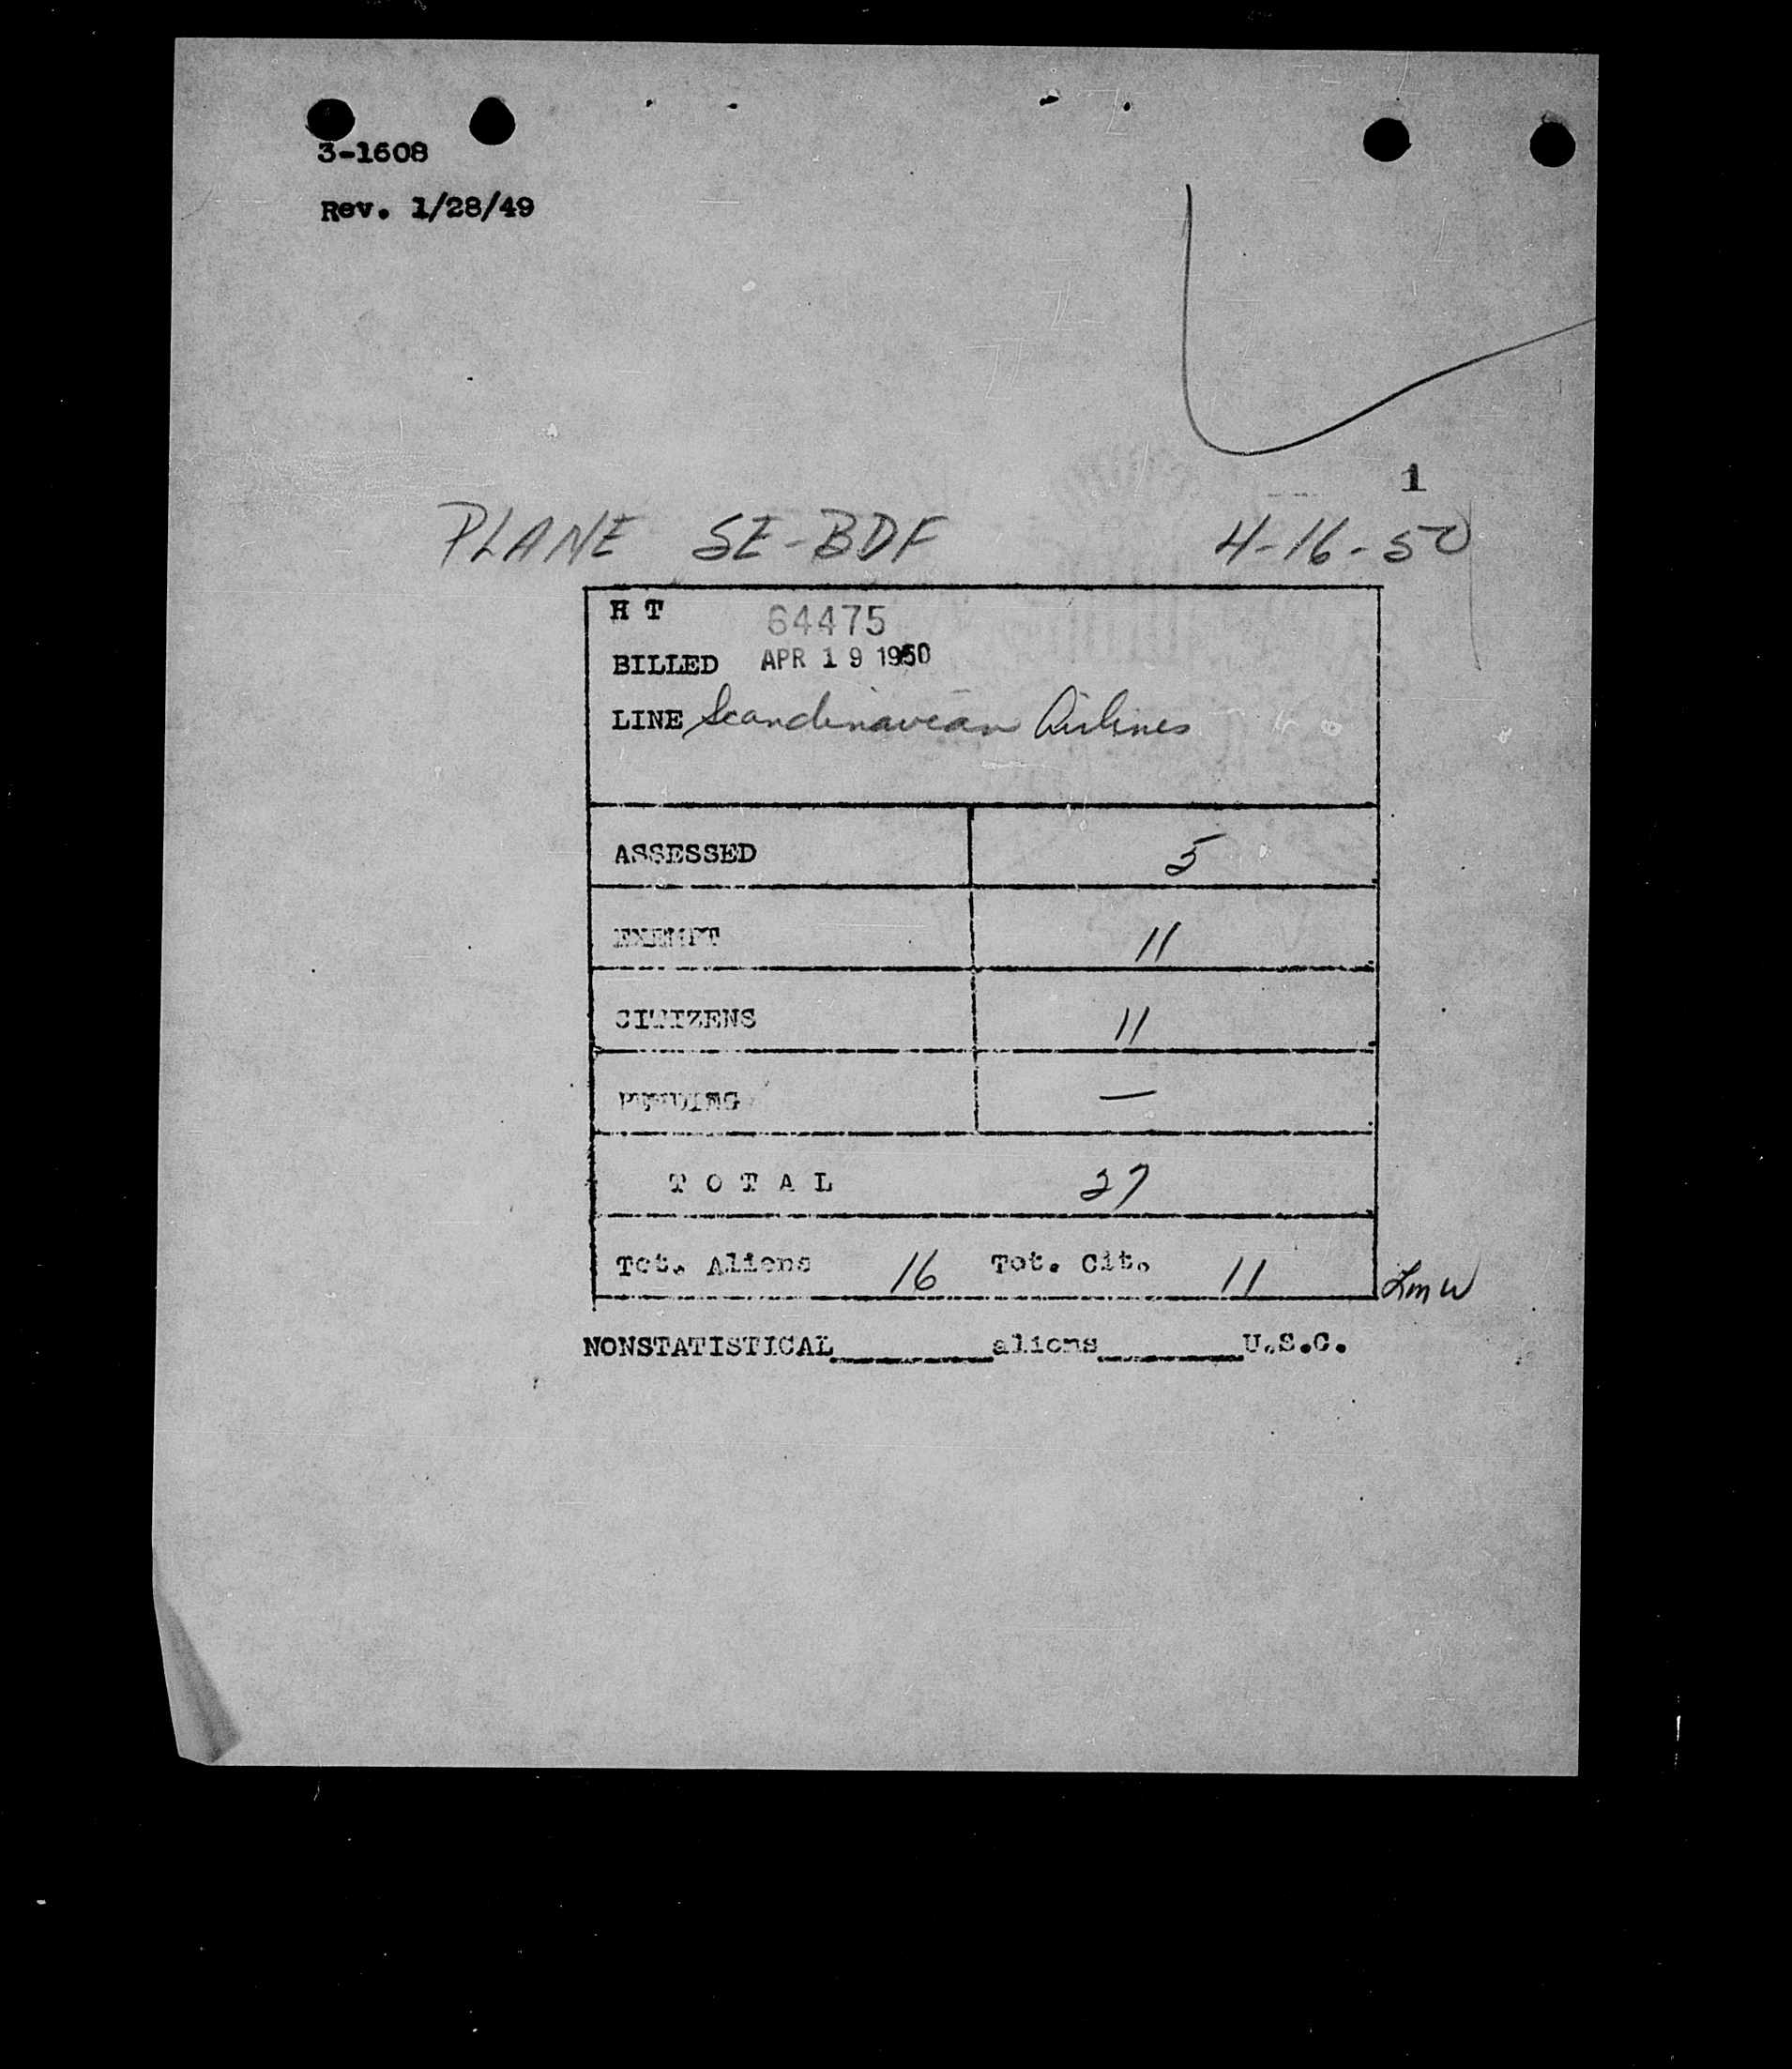 3-1608
Rev. 1/28/49
1
PLANE SE-BDF 4-16-50
H T 64475
BILLED APR 19 1950
LINE Scandinavian Airlines
ASSESSED 5
EXEMPT 11
CITIZENS 11
PENDING —
TOTAL 27
Tot. Aliens 16 Tot. Cit. 11 LMW
NONSTATISTICAL________aliens________U.S.C.